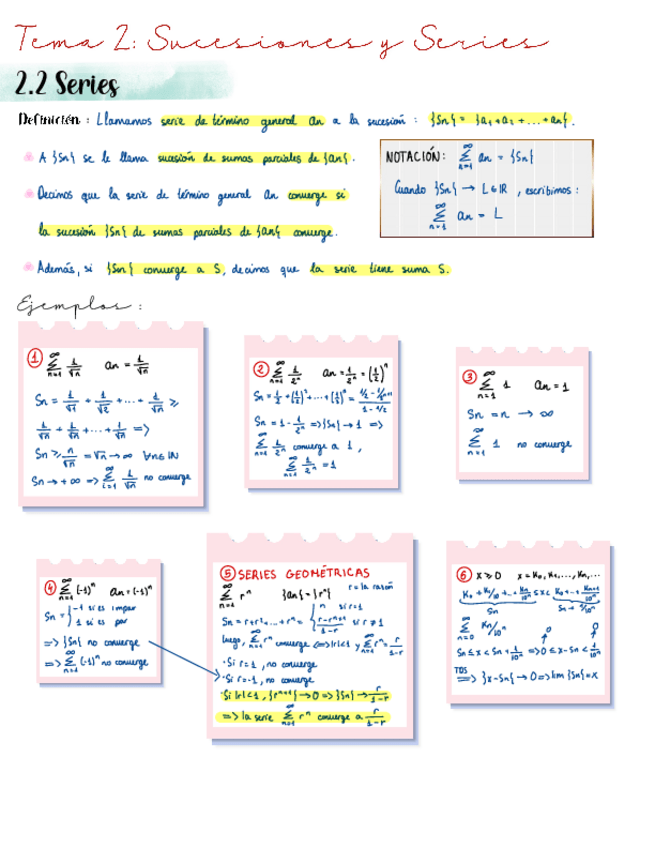 Tema 2: Sucesiones y Series
2.2 Series
Definición: Llamamos serie de término general an a la sucesión: {Sn} = {a₁+a₂+...+an}.
A {Sn} se le llama sucesión de sumas parciales de {an}.
Decimos que la serie de término general an converge si
la sucesión {Sn} de sumas parciales de {an} converge.
Además, si {Sn} converge a S, decimos que la serie tiene suma S.
NOTACIÓN: ∞ Σ n=1 an = {Sn}
Cuando {Sn} → L∈ℝ, escribimos:
∞ Σ n=1 an = L
Ejemplos:
① ∞ Σ n=1 1/√n an = 1/√n
Sn = 1/√1 + 1/√2 + ... + 1/√n ≥
1/√n + 1/√n + ... + 1/√n =>
Sn ≥ n/√n = √n → ∞ ∀n∈ℕ
Sn → +∞ => ∞ Σ i=1 1/√n no converge
② ∞ Σ n=1 1/2ⁿ an = 1/2ⁿ = (1/2)ⁿ
Sn = 1/2 + (1/2)² + ... + (1/2)ⁿ = (1/2 - 1/2ⁿ⁺¹)/(1 - 1/2)
Sn = 1 - 1/2ⁿ => {Sn} → 1 =>
∞ Σ n=1 1/2ⁿ converge a 1,
∞ Σ n=1 1/2ⁿ = 1
③ ∞ Σ n=1 1 an = 1
Sn = n → ∞
∞ Σ n=1 1 no converge
④ ∞ Σ n=1 (-1)ⁿ an = (-1)ⁿ
Sn = { -1 si es impar
1 si es par
=> {Sn} no converge
=> ∞ Σ n=1 (-1)ⁿ no converge
⑤ SERIES GEOMÉTRICAS
∞ Σ n=1 rⁿ {an} = {rⁿ} r = la razón
Sn = r+r²+...+rⁿ = { n si r=1
(r-rⁿ⁺¹)/(1-r) si r ≠ 1
luego, ∞ Σ n=1 rⁿ converge <=> |r|<1 y ∞ Σ n=1 rⁿ = r/(1-r)
· Si r=1, no converge
· Si r=-1, no converge
· Si |r|<1, {rⁿ⁺¹} → 0 => {Sn} → r/(1-r)
=> la serie ∞ Σ n=1 rⁿ converge a r/(1-r)
⑥ x ≥ 0 x = K₀, K₁, ..., Kn, ...
Sn
∞ Σ n=0 Kn/10ⁿ
Sn ≤ x < Sn + 1/10ⁿ => 0 ≤ x - Sn < 1/10ⁿ
0 0
TDS => {x-Sn} → 0 => lim {Sn} = x